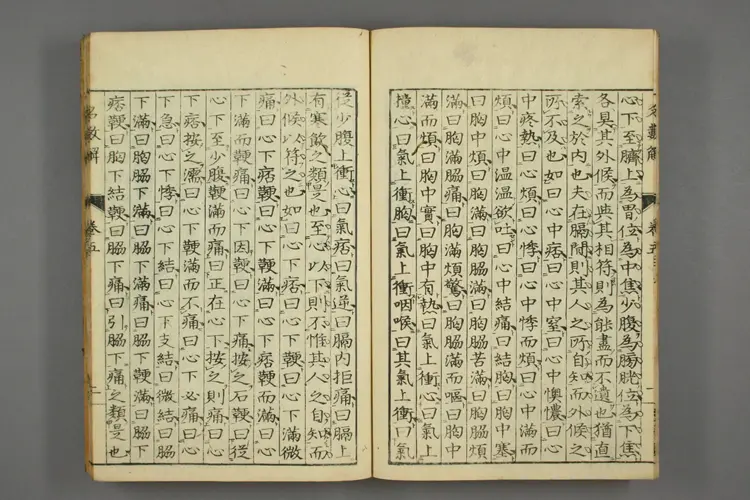 心下至臍上爲胃位爲中焦少腹爲膀胱位爲下焦
各具其外候而與其相符則爲能盡而不遺也猶直
索之於内也夫在膈間則其人之所自知而外候之
所不及也如曰心中痞曰心中窒曰心中懊憹曰心
中疼熱曰心煩曰心悸曰心中悸而煩曰心中滿而
煩曰心中温温欲吐曰心中結痛曰結胸曰胸中塞
曰胸中煩曰胸滿曰胸脇滿曰胸脇苦滿曰胸脇煩
滿曰胸脇痛曰胸滿煩驚曰胸脇滿而嘔曰胸中
滿而煩曰胸中實曰胸中有熱曰氣上衝心曰氣上
撞心曰氣上衝胸曰氣上衝咽喉曰其氣上衝曰氣
從少腹上衝心曰氣痞曰氣逆曰膈内拒痛曰膈上
有寒飮之類是也至心以下則不惟其人之自知而
外候以符之也如曰心下痞曰心下鞕曰心下滿微
痛曰心下痞鞕曰心下鞕滿曰心下痞鞕而滿曰心
下滿而鞕痛曰心下因鞕曰心下痛按之石鞕曰從
心下至少腹鞕滿而痛曰正在心下按之則痛曰心
下痞按之濡曰心下鞕滿而不痛曰心下必痛曰心
下急曰心下悸曰心下結曰心下支結曰微結曰胸
下滿曰胸脇下滿曰脇下滿痛曰脇下鞕滿曰脇下
痞鞕曰胸下結鞕曰脇下痛曰引脇下痛之類是也
名數解
卷五